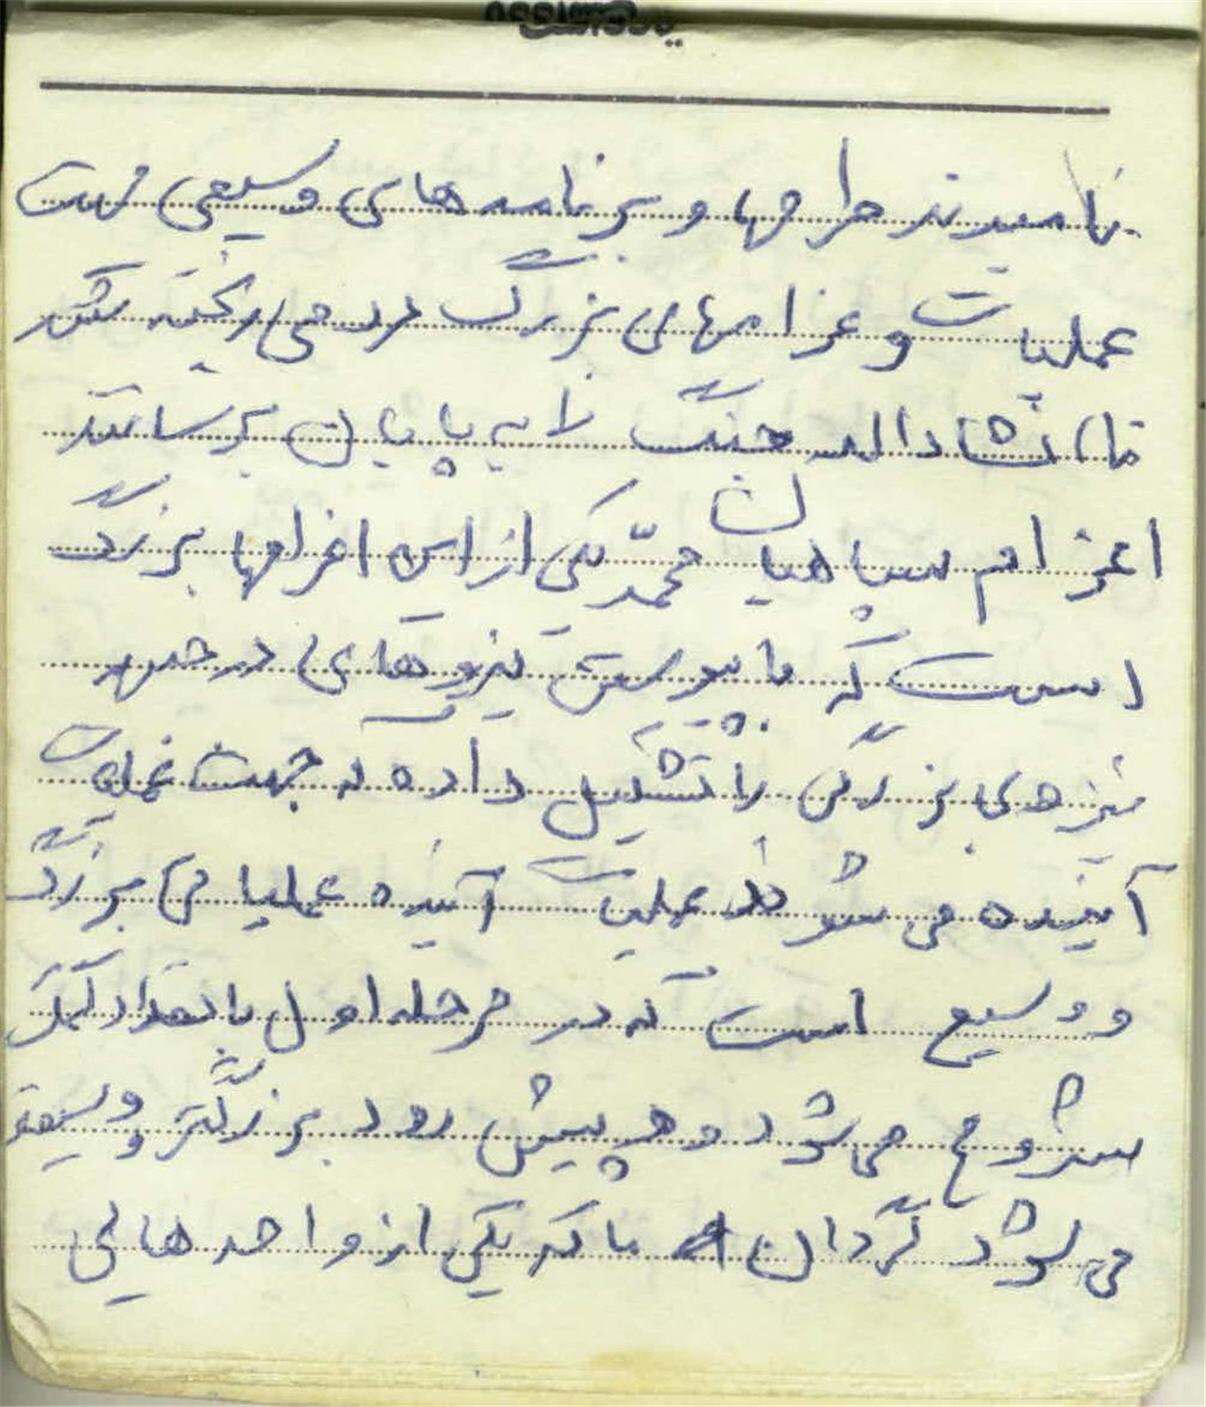 نامیدند طرحها و برنامه های وسیعی جهت
عملیات و عزامهای بزرگ مردمی ریخته شد
تا انشاءالله جنگ را به پایان برسانند
اعزام سپاهیان محمد یکی از این اعزامها بزرگ
است که با پیوستن نیروهای در
نیروهای بزرگی را تشکیل داده که جهت عملیات
آینده می شوند عملیات آینده عملیاتی بزرگ
و وسیع است که در مرحله اول با تعداد کمتر
شروع می شود و هر پیش رود بزرگتر و وسیعتر
می شود گردان ما که یکی از واحدهائی